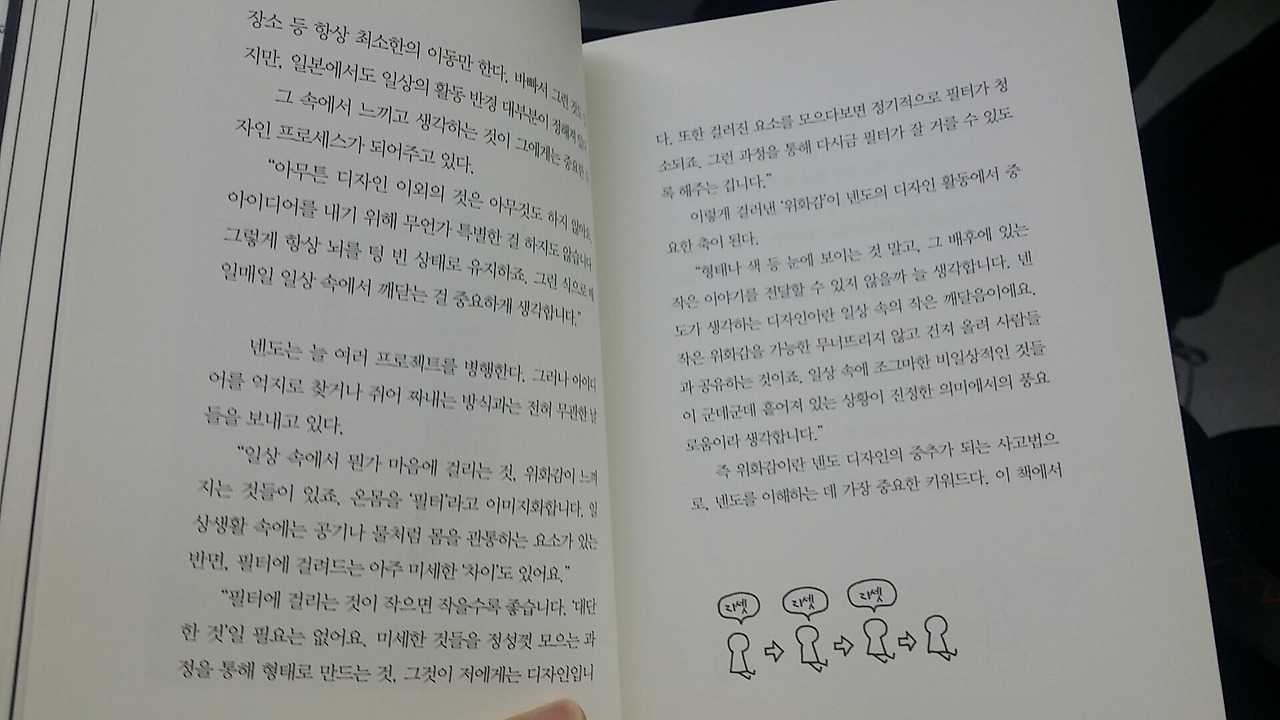 장소 등 항상 최소한의 이동만 한다. 바빠서 그런
지만, 일본에서도 일상의 활동 반경 대부분이 정해져
그 속에서 느끼고 생각하는 것이 그에게는 중요한
자인 프로세스가 되어주고 있다.
“아무튼 디자인 이외의 것은 아무것도 하지 않아요.
아이디어를 내기 위해 무언가 특별한 걸 하지도 않습니다
그렇게 항상 뇌를 텅 빈 상태로 유지하죠. 그런 식으로
일매일 일상 속에서 깨닫는 걸 중요하게 생각합니다.”
넨도는 늘 여러 프로젝트를 병행한다. 그러나 아이디
어를 억지로 찾거나 쥐어 짜내는 방식과는 전혀 무관한 날
들을 보내고 있다.
“일상 속에서 뭔가 마음에 걸리는 것, 위화감이 느껴
지는 것들이 있죠. 온몸을 ‘필터’라고 이미지화합니다. 일
상생활 속에는 공기나 물처럼 몸을 관통하는 요소가 있는
반면, 필터에 걸려드는 아주 미세한 ‘차이’도 있어요.”
“필터에 걸리는 것이 작으면 작을수록 좋습니다. ‘대단
한 것’일 필요는 없어요. 미세한 것들을 정성껏 모으는 과
정을 통해 형태로 만드는 것, 그것이 저에게는 디자인입니
다. 또한 걸러진 요소를 모으다보면 정기적으로 필터가 청
소되죠. 그런 과정을 통해 다시금 필터가 잘 거를 수 있도
록 해주는 겁니다.”
이렇게 걸러낸 ‘위화감’이 넨도의 디자인 활동에서 중
요한 축이 된다.
“형태나 색 등 눈에 보이는 것 말고, 그 배후에 있는
작은 이야기를 전달할 수 있지 않을까 늘 생각합니다. 넨
도가 생각하는 디자인이란 일상 속의 작은 깨달음이에요.
작은 위화감을 가능한 무너뜨리지 않고 건져 올려 사람들
과 공유하는 것이죠. 일상 속에 조그마한 비일상적인 것들
이 군데군데 흩어져 있는 상황이 진정한 의미에서의 풍요
로움이라 생각합니다.”
즉 위화감이란 넨도 디자인의 중추가 되는 사고법으
로, 넨도를 이해하는 데 가장 중요한 키워드다. 이 책에서
리셋 리셋 리셋